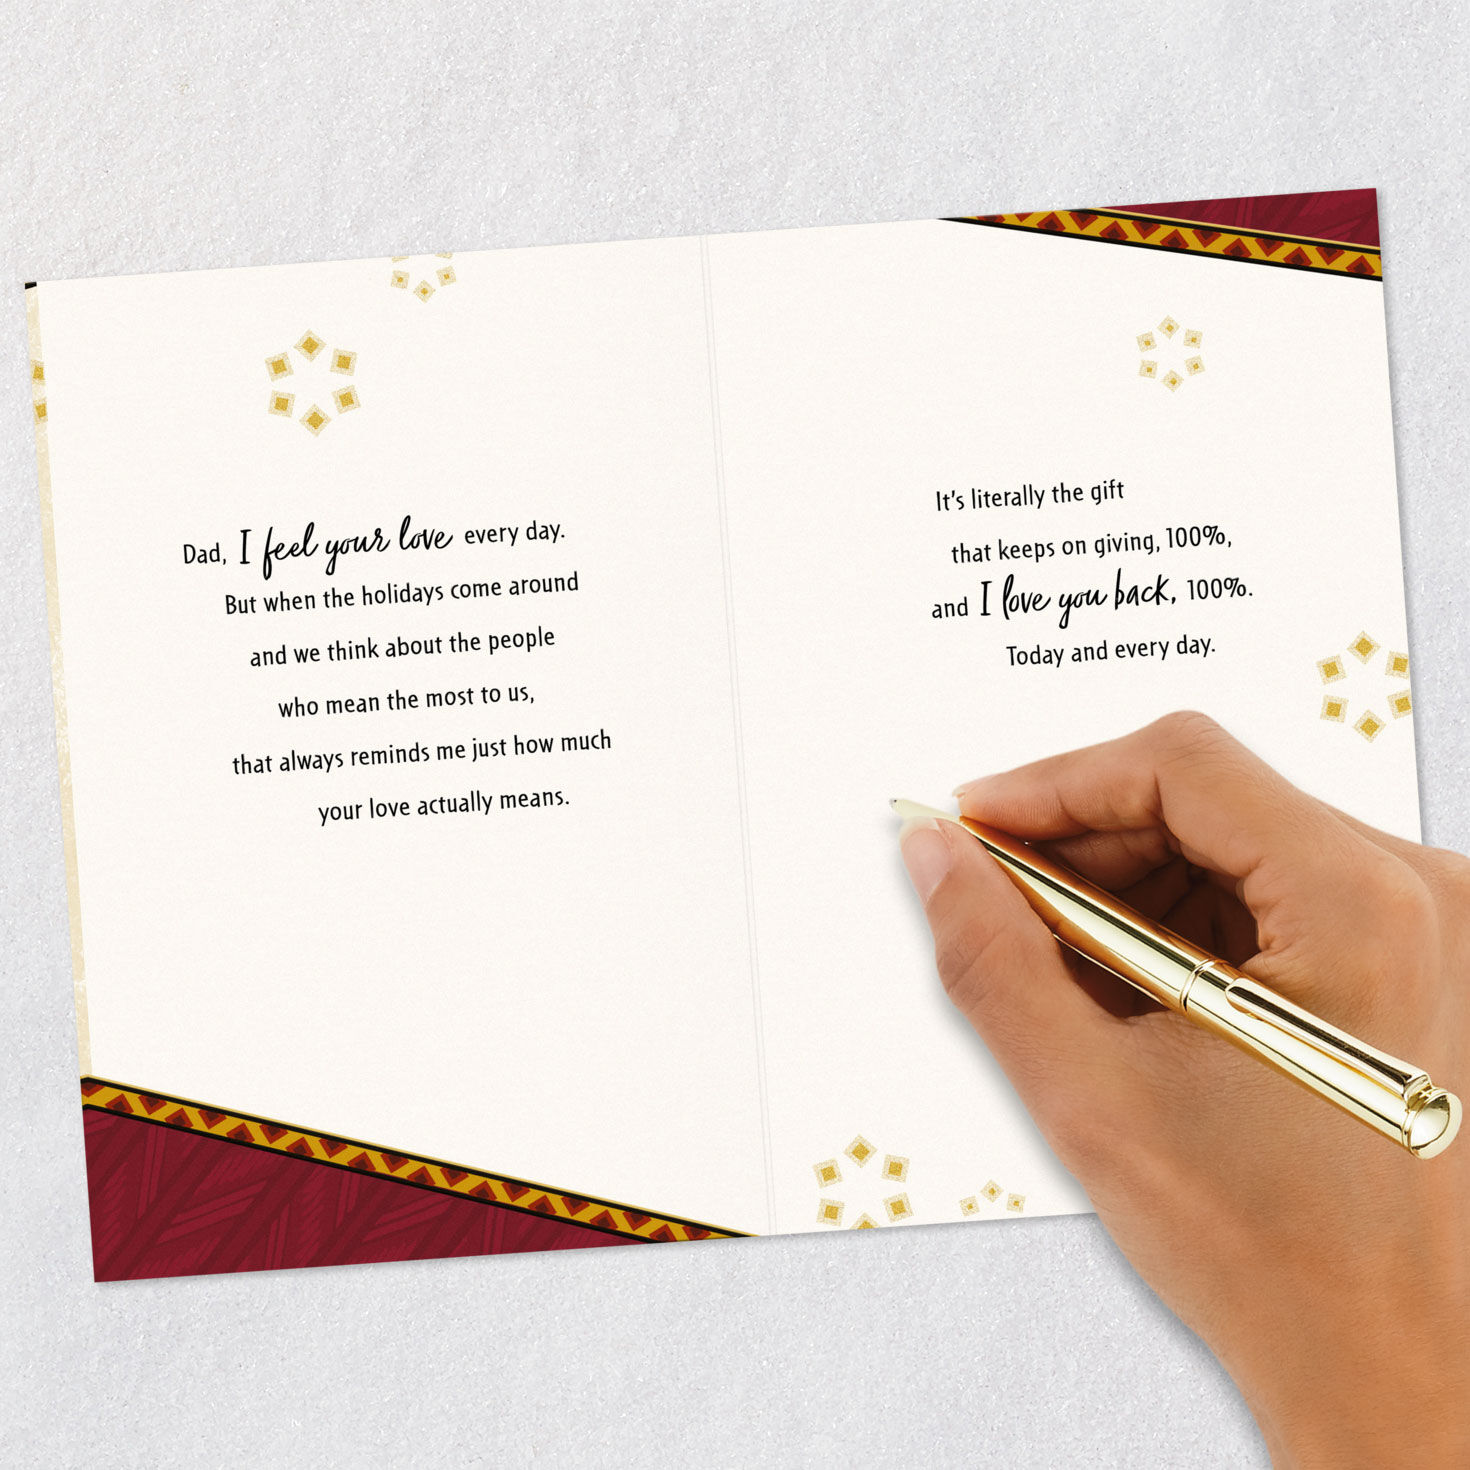 Dad, I feel your love every day.
But when the holidays come around
and we think about the people
who mean the most to us,
that always reminds me just how much
your love actually means.
It's literally the gift
that keeps on giving, 100%,
and I love you back, 100%.
Today and every day.